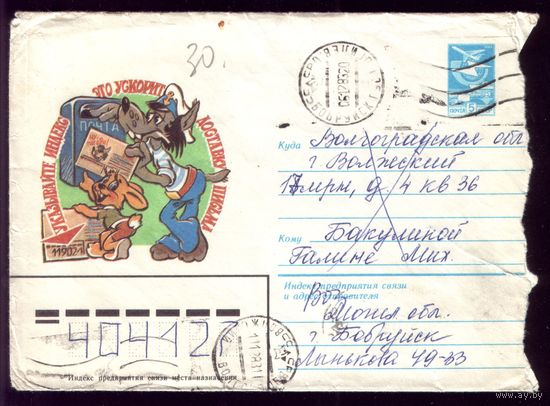 30.
УКАЗЫВАЙТЕ ИНДЕКС
ЭТО УСКОРИТ
ДОСТАВКУ ПИСЬМА
ПОЧТА
119021
ПОЧТА 5
Куда Волгоградская обл
г Волжский
17 мкрн, д/4 кв 36
Кому Бакулиной
Галине Мих.
Индекс предприятия связи
и адрес отправителя
Могил обл.
г. Бобруйск
Лынькова 49-83
404122
Индекс предприятия связи места назначения
www.ay.by